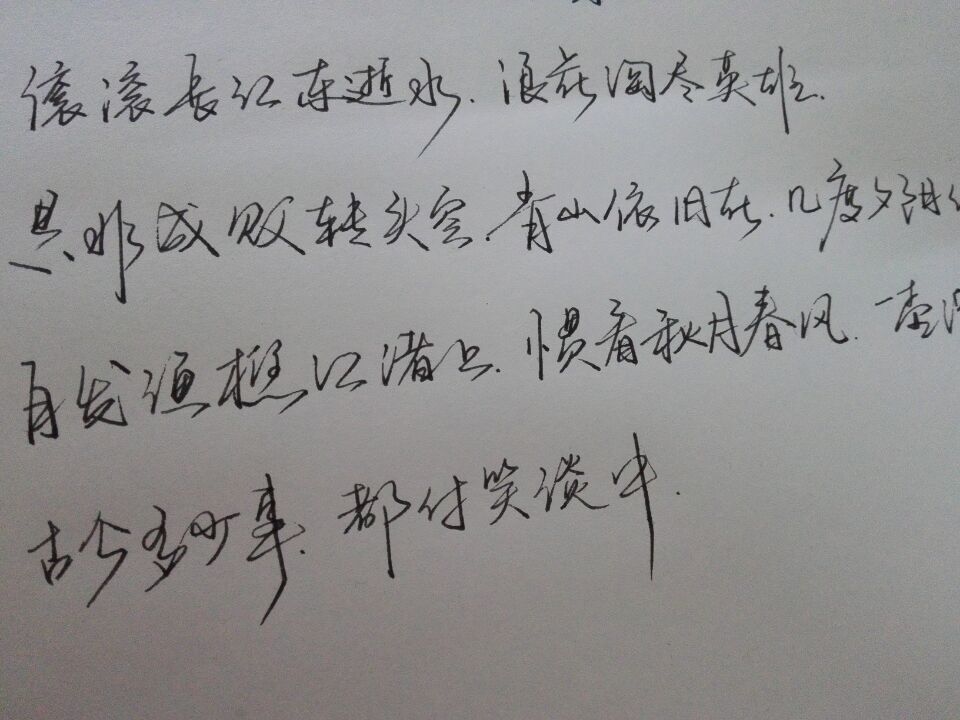 滚滚长江东逝水.浪花淘尽英雄.
是非成败转头空.青山依旧在.几度夕阳
白发渔樵江渚上.惯看秋月春风.一壶
古今多少事.都付笑谈中.